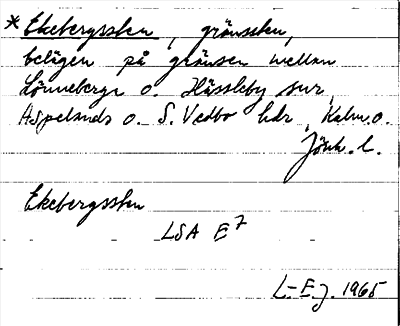 * Ekebergssten, gränssten,
belägen på gränsen mellan
Lönneberga o. Hässleby snr,
Aspelands o. S. Vedbo hdr, Kalm. o.
Jönk. l.
Ekebergssten
LSA E7
L-E.J. 1965